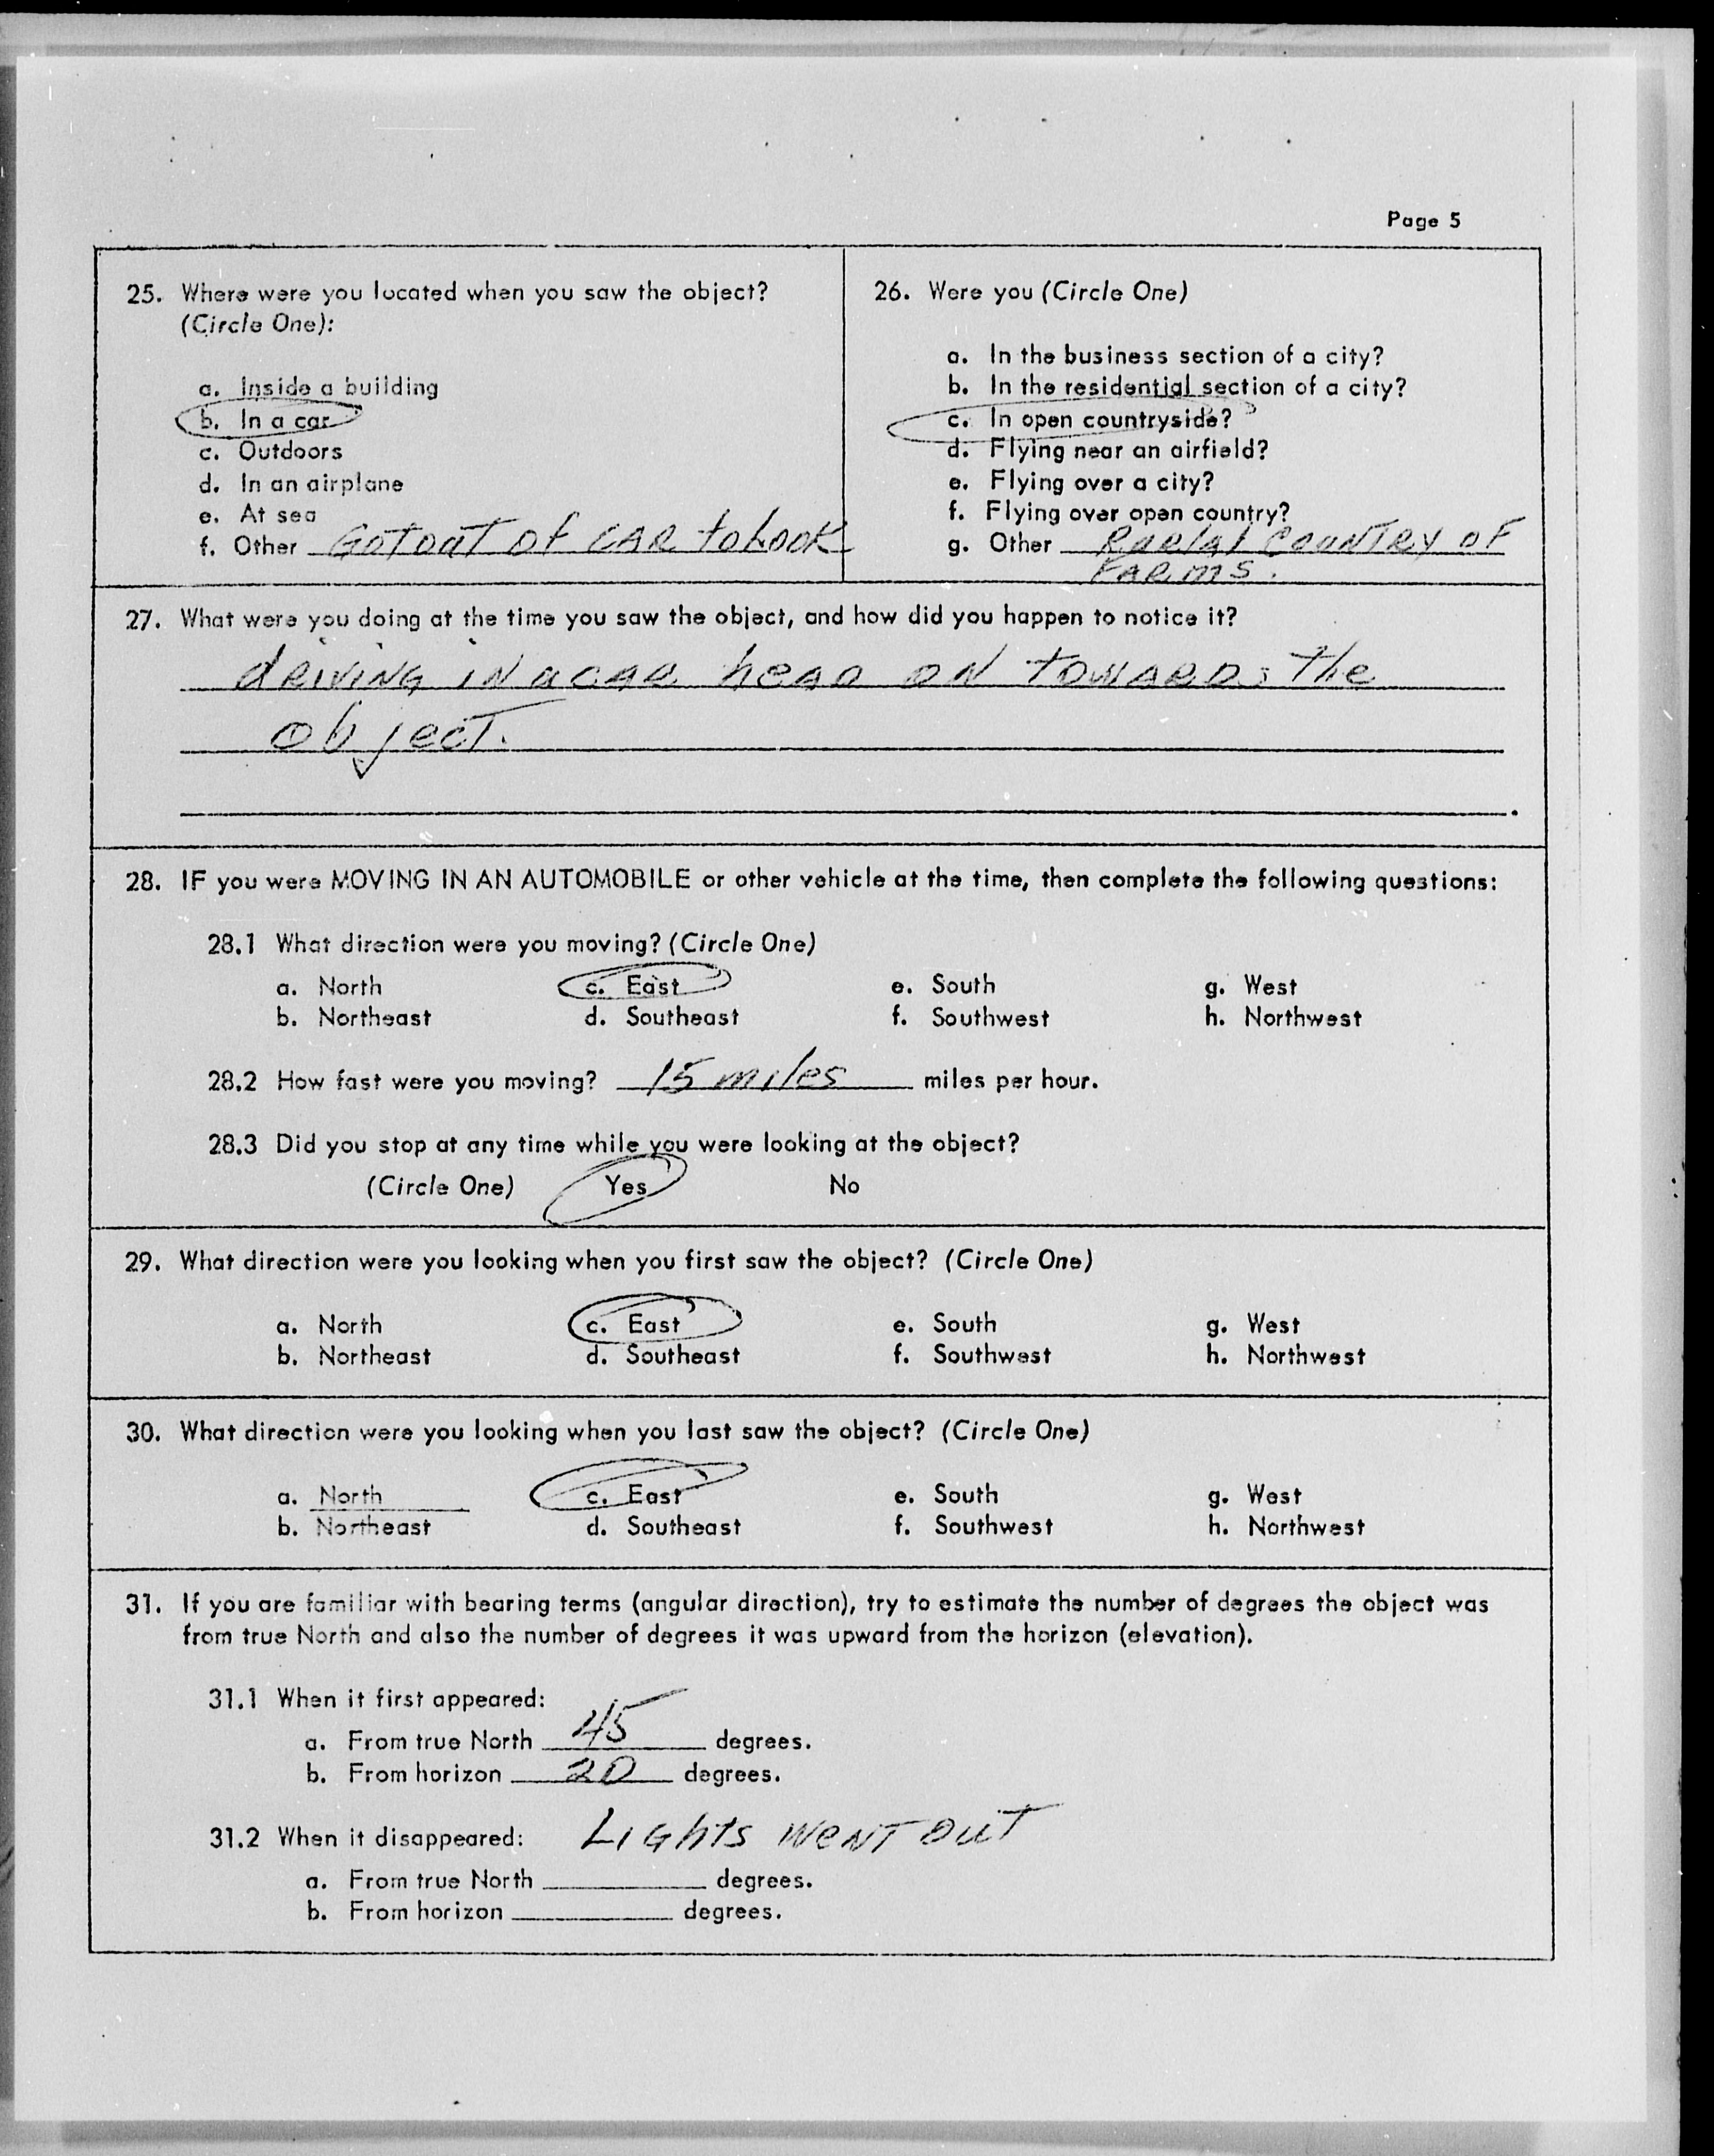 Page 5
25. Where were you located when you saw the object?
(Circle One):
a. Inside a building
b. In a car
c. Outdoors
d. In an airplane
e. At sea
f. Other GOT OUT OF CAR to LOOK
26. Were you (Circle One)
a. In the business section of a city?
b. In the residential section of a city?
c. In open countryside?
d. Flying near an airfield?
e. Flying over a city?
f. Flying over open country?
g. Other COUNTRY OF
FARMS.
27. What were you doing at the time you saw the object, and how did you happen to notice it?
dRIVING IN a CAR heAD ON TOWARDS The
object.
28. IF you were MOVING IN AN AUTOMOBILE or other vehicle at the time, then complete the following questions:
28.1 What direction were you moving? (Circle One)
a. North c. East e. South g. West
b. Northeast d. Southeast f. Southwest h. Northwest
28.2 How fast were you moving? 15 miles miles per hour.
28.3 Did you stop at any time while you were looking at the object?
(Circle One) Yes No
29. What direction were you looking when you first saw the object? (Circle One)
a. North c. East e. South g. West
b. Northeast d. Southeast f. Southwest h. Northwest
30. What direction were you looking when you last saw the object? (Circle One)
a. North c. East e. South g. West
b. Northeast d. Southeast f. Southwest h. Northwest
31. If you are familiar with bearing terms (angular direction), try to estimate the number of degrees the object was
from true North and also the number of degrees it was upward from the horizon (elevation).
31.1 When it first appeared:
a. From true North 45 degrees.
b. From horizon 20 degrees.
31.2 When it disappeared: LIGhtS WeNT OuT
a. From true North degrees.
b. From horizon degrees.